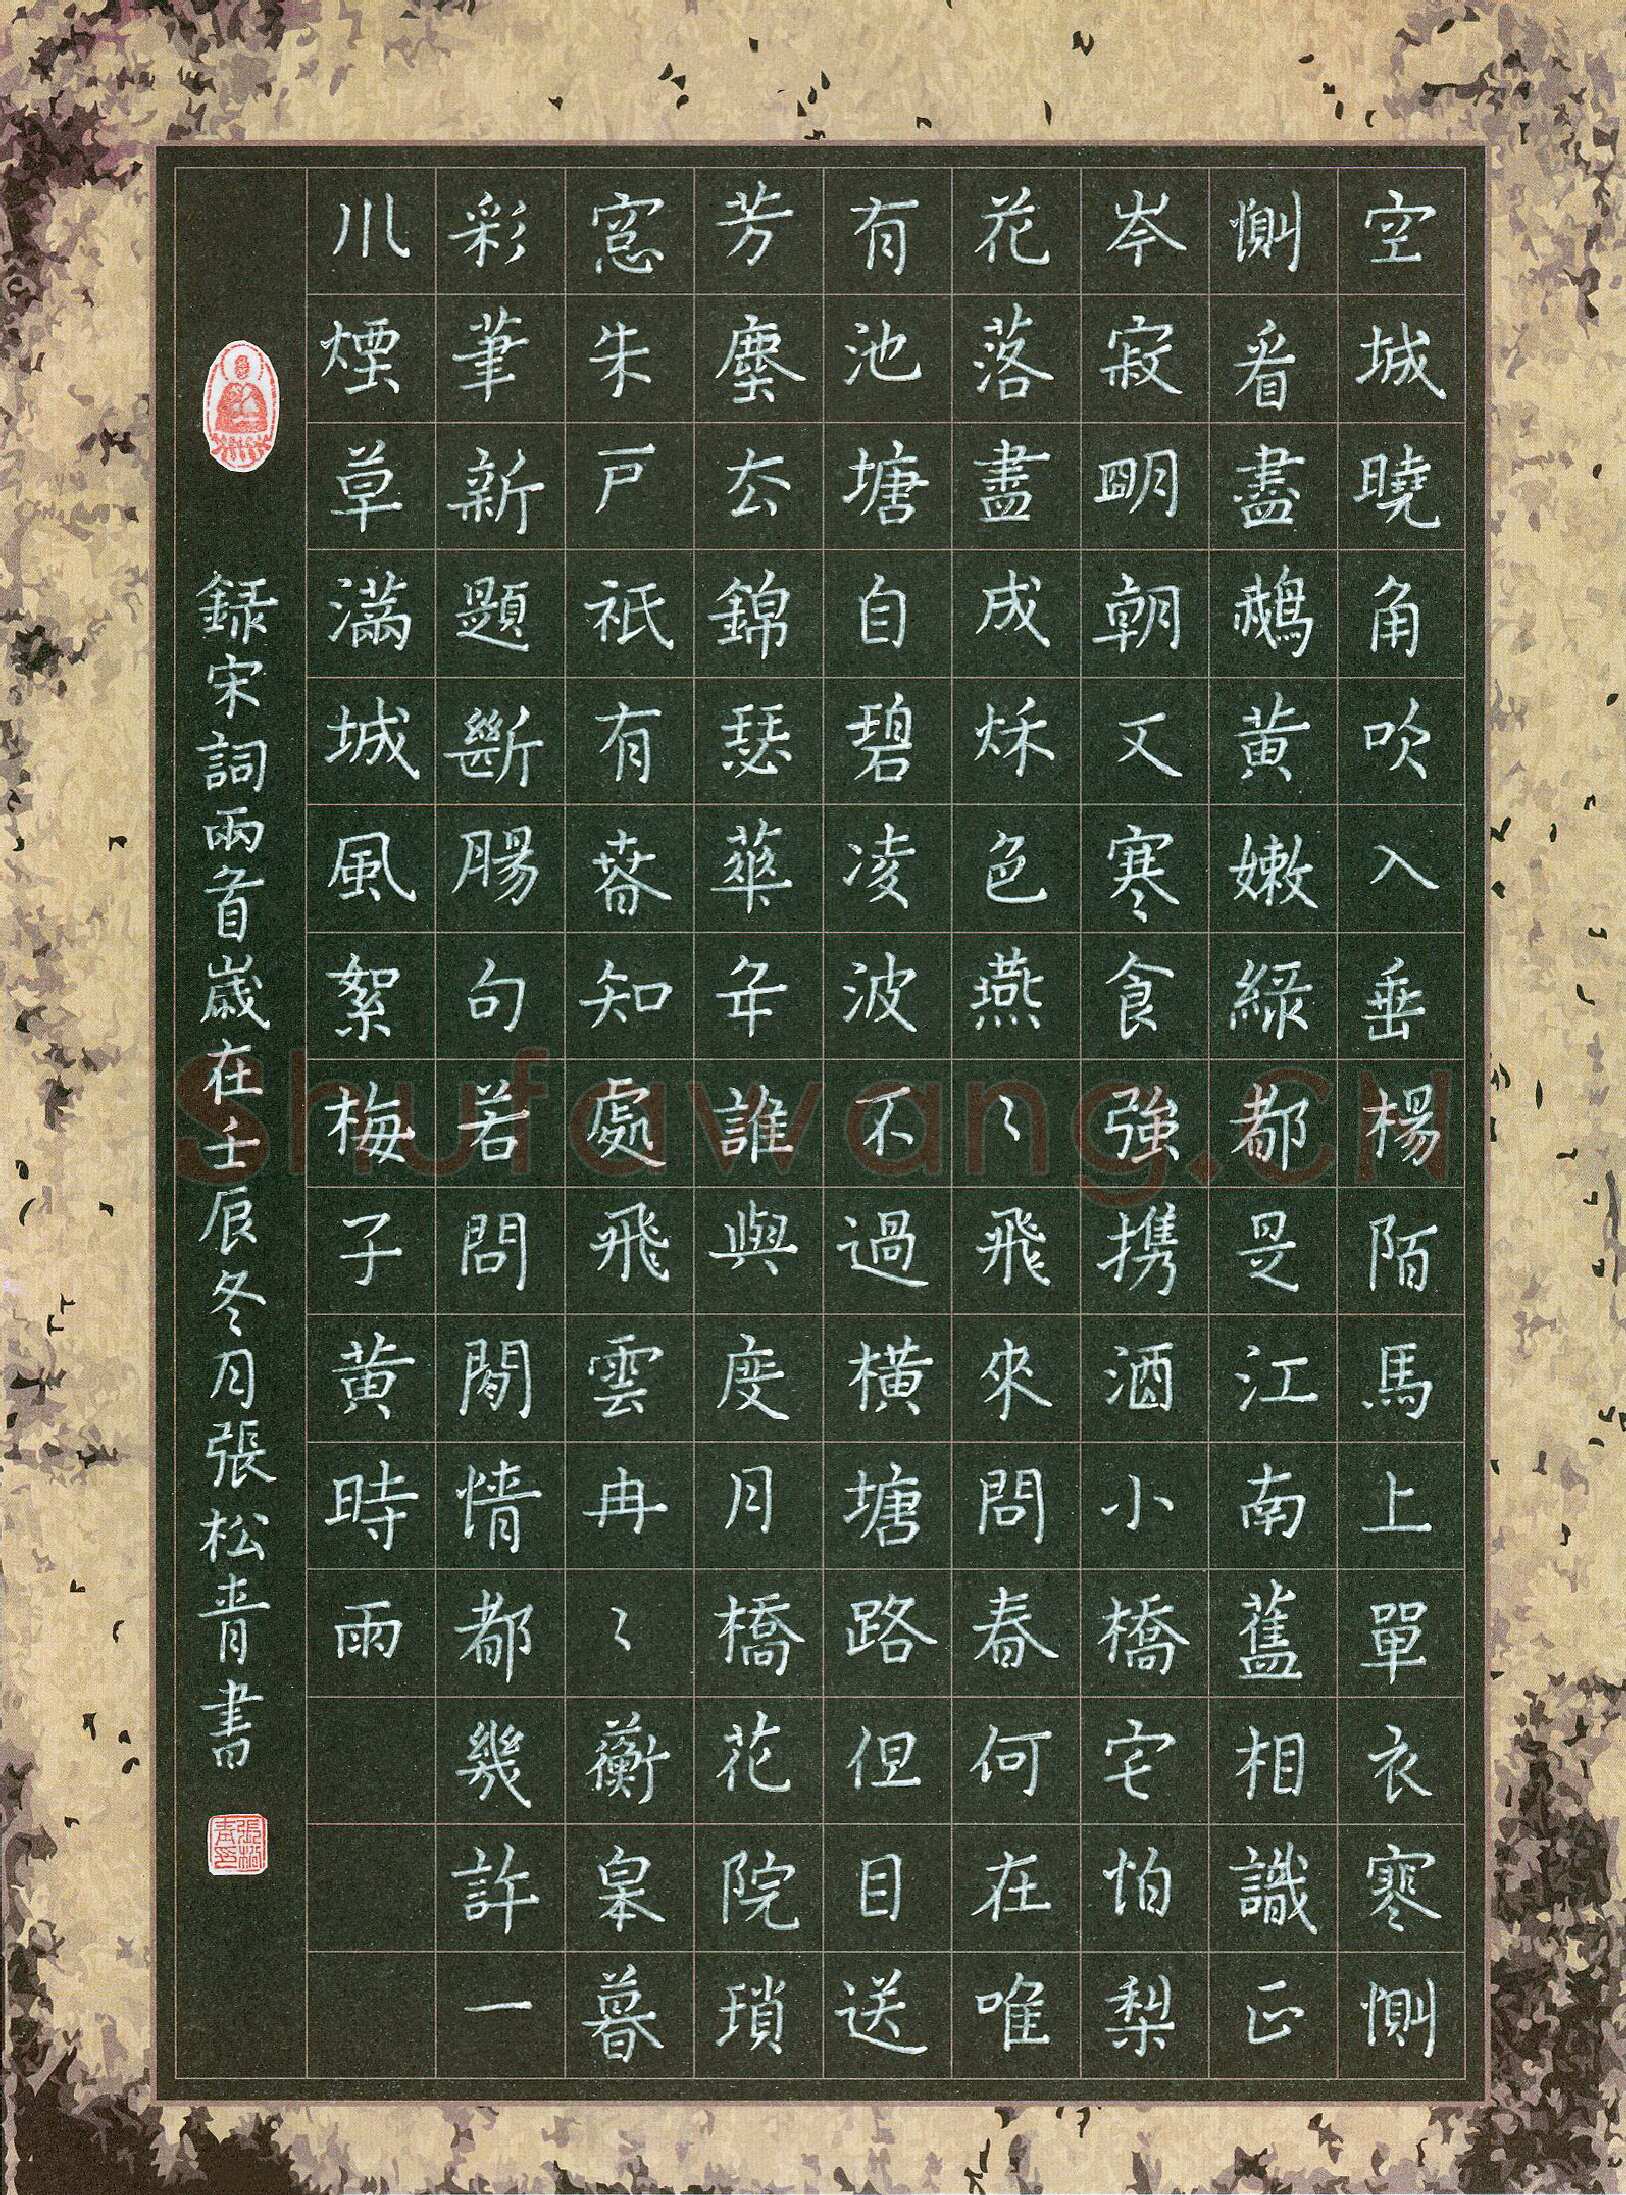 空城曉角吹入垂楊陌馬上單衣寒惻
惻看盡鵝黃嫩綠都是江南舊相識正
岑寂明朝又寒食強携酒小橋宅怕梨
花落盡成秋色燕〻飛來問春何在唯
有池塘自碧凌波不過橫塘路但目送
芳塵去錦瑟華年誰與度月橋花院瑣
窓朱戶祇有春知處飛雲冉〻蘅皋暮
彩筆新題斷腸句若問閒情都幾許一
川煙草滿城風絮梅子黃時雨
錄宋詞兩首歲在壬辰冬月張松青書
張松青印
Shufawang.CN